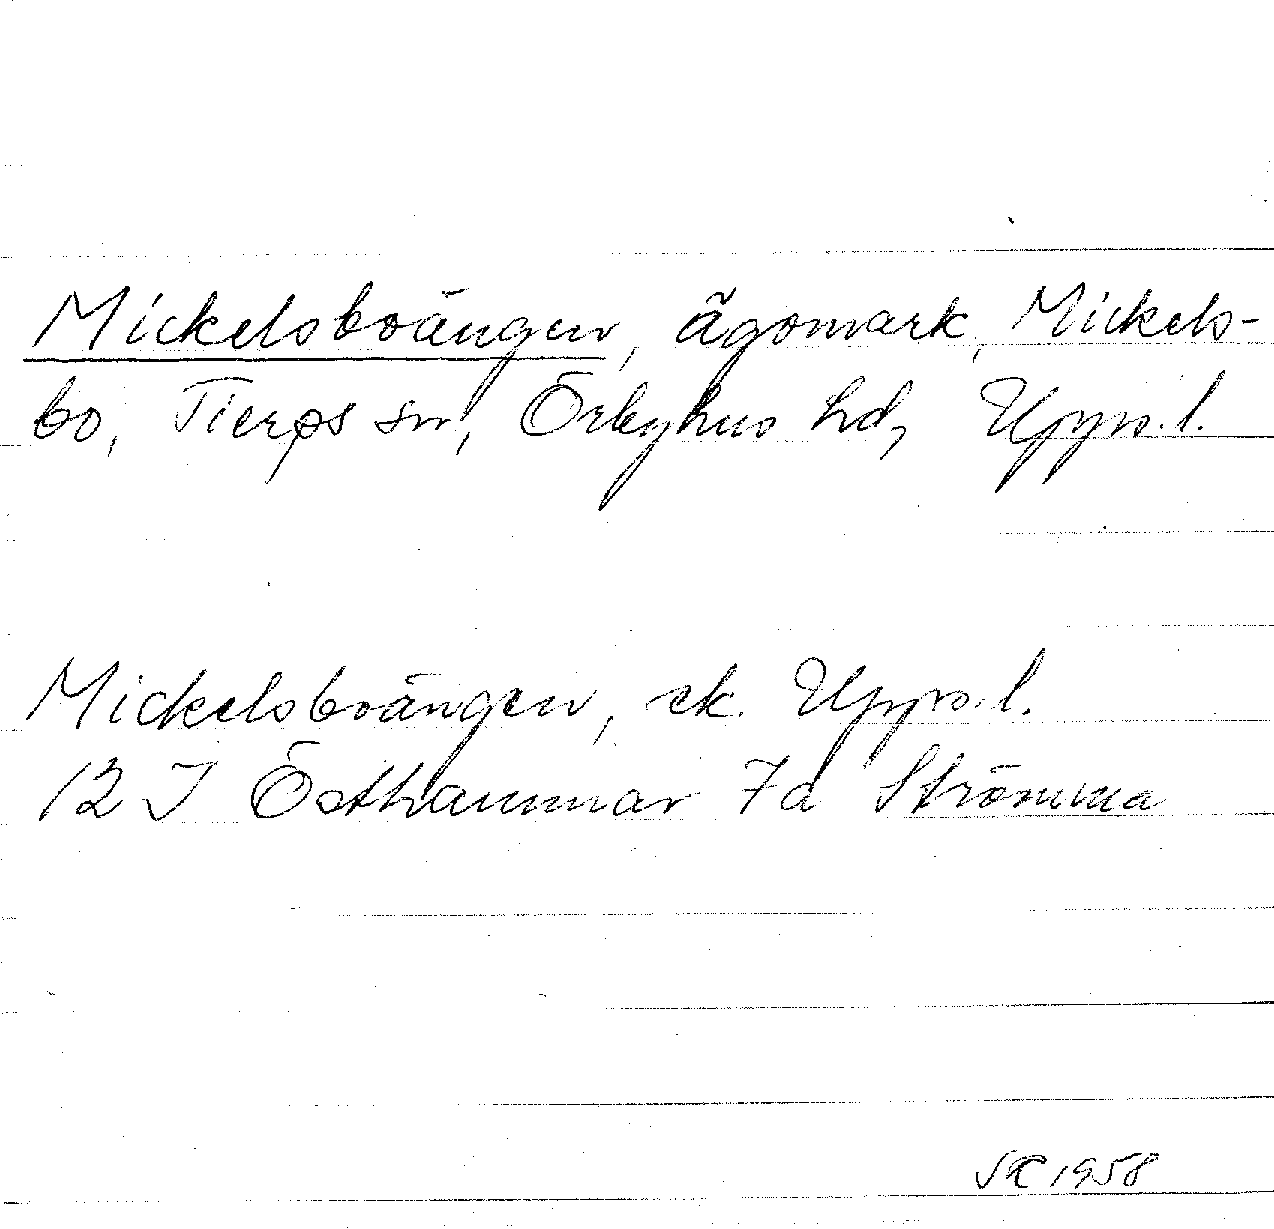 Mickelsboängen, ägomark, Mickels-
bo, Tierps sn, Örbyhus hd, Upps. l.
Mickelsboängen, ek. Upps. l.
12 I Östhammar 7d Strömma
1958